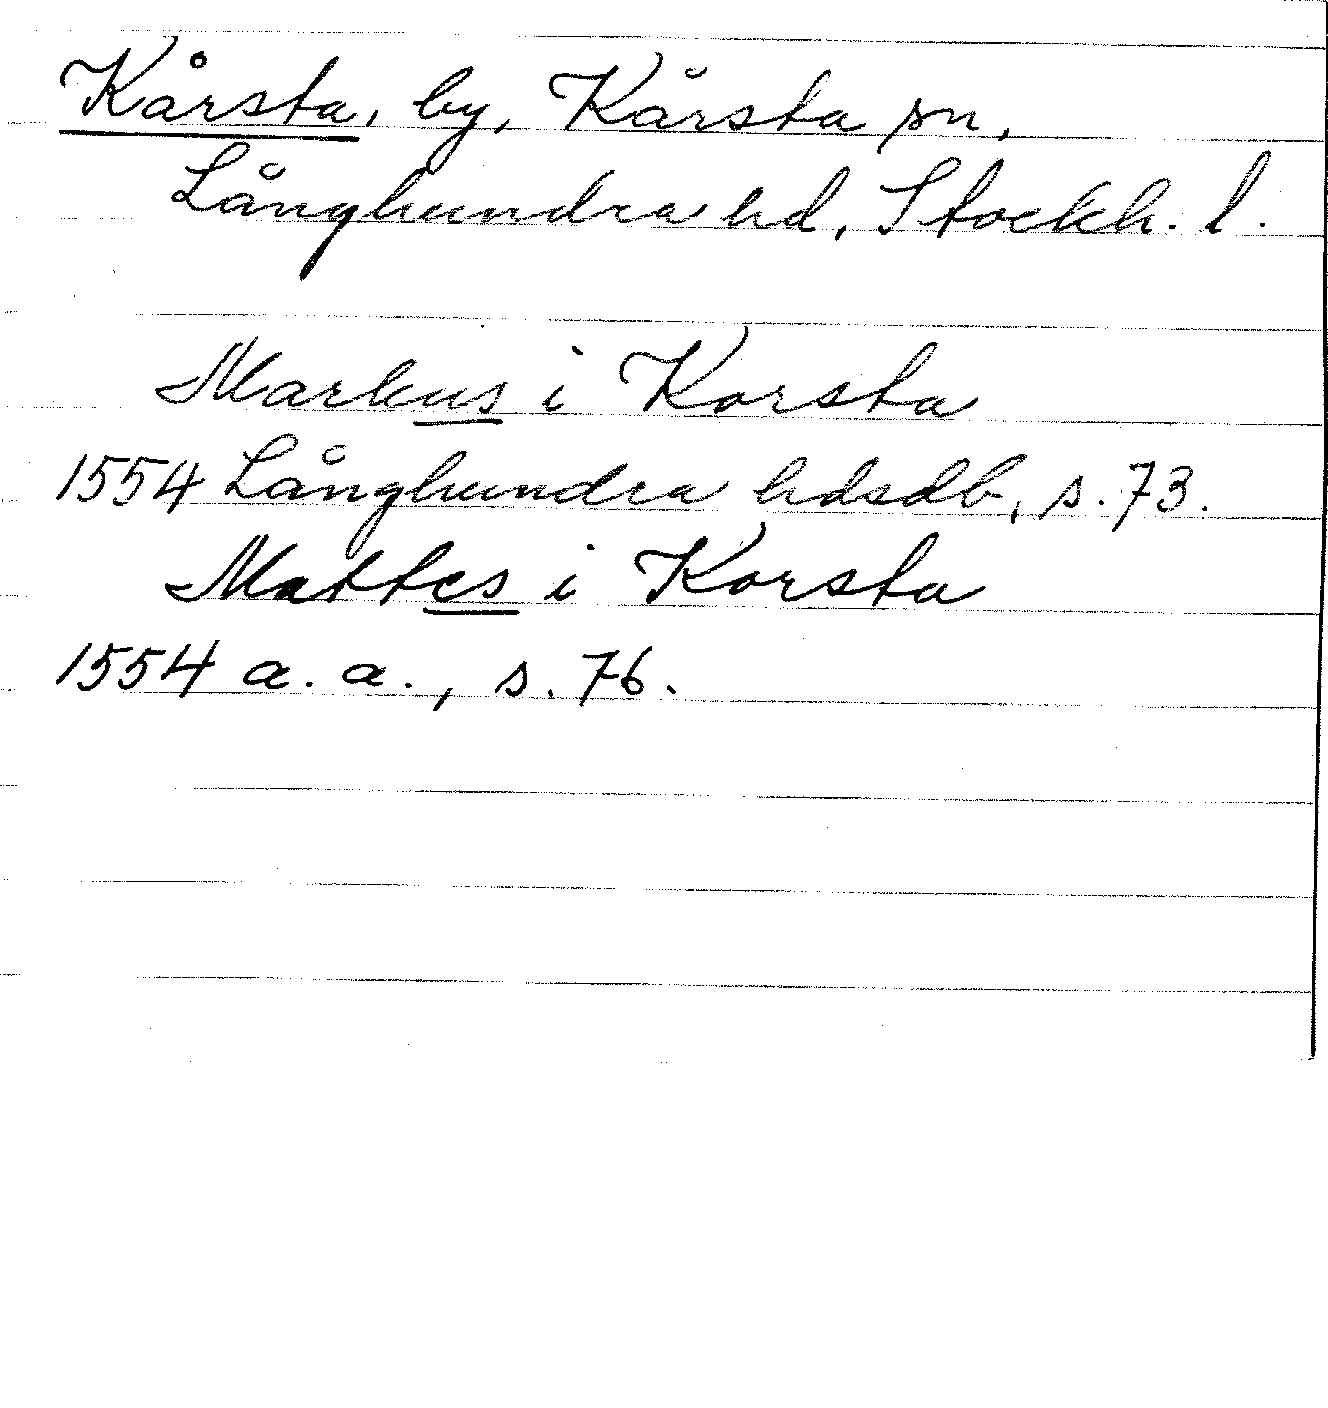 Kårsta, by, Kårsta sn,
Långhundra hd, Stockh. l.
Markus i Korsta
1554 Långhundra hdsdb, s. 73.
Mattes i Korsta
1554 a. a., s. 76.